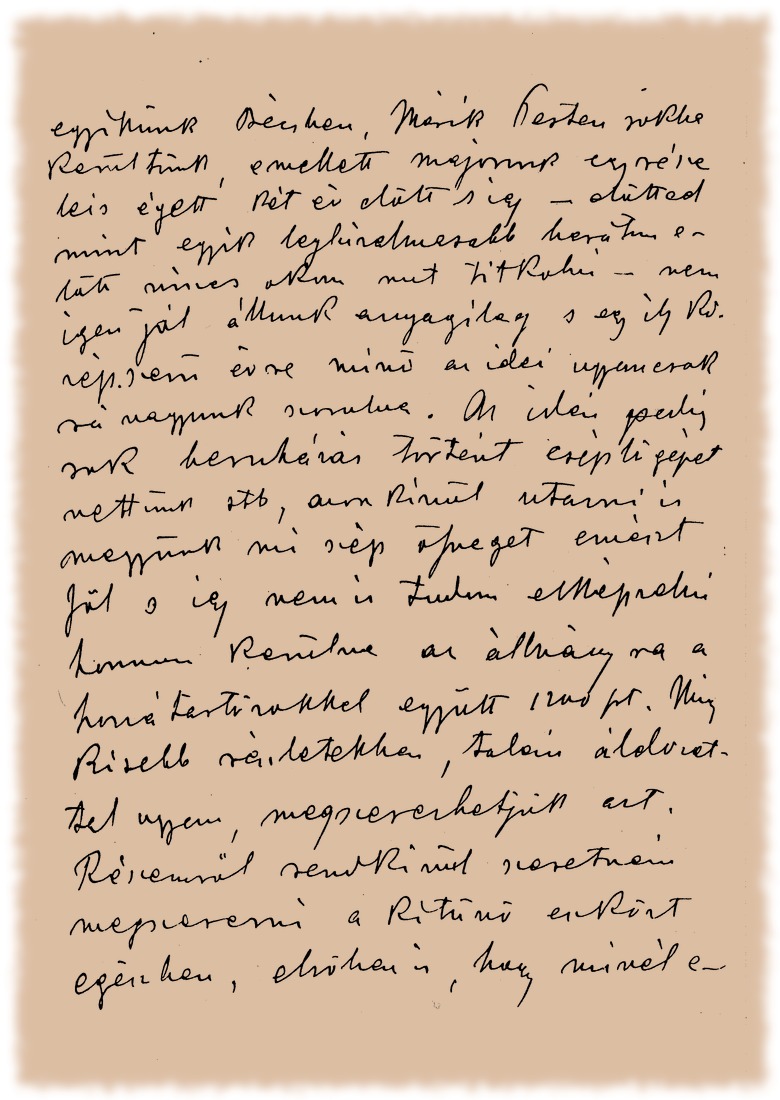 egyikünk Bécsben, másik Pesten sokba
kerültünk, emellett majorunk egy része
leis égett két év előtt s így – előtted
mint egyik legbizalmasabb barátom e-
lőtt nincs okom mit titkolni – nem
igen jól állunk anyagilag s egy ily kö-
zépszerű évre minő az idei ugyancsak
rá vagyunk szorulva. Az idén pedig
sok beruházás történt cséplőgépet
vettünk stb, azonkívül utazni is
megyünk mi szép összeget emészt
föl s így nem is tudom elképzelni
honnan kerülne az állvány ra a
hozzátartozókkal együtt 1200 frt. Míg
kisebb részletekben, talán áldozat-
tal ugyan, megszerezhetjük azt.
Részemről rendkívül szeretném
megszerezni a kitűnő eszközt
egészben, elsőben is, hogy minél e-